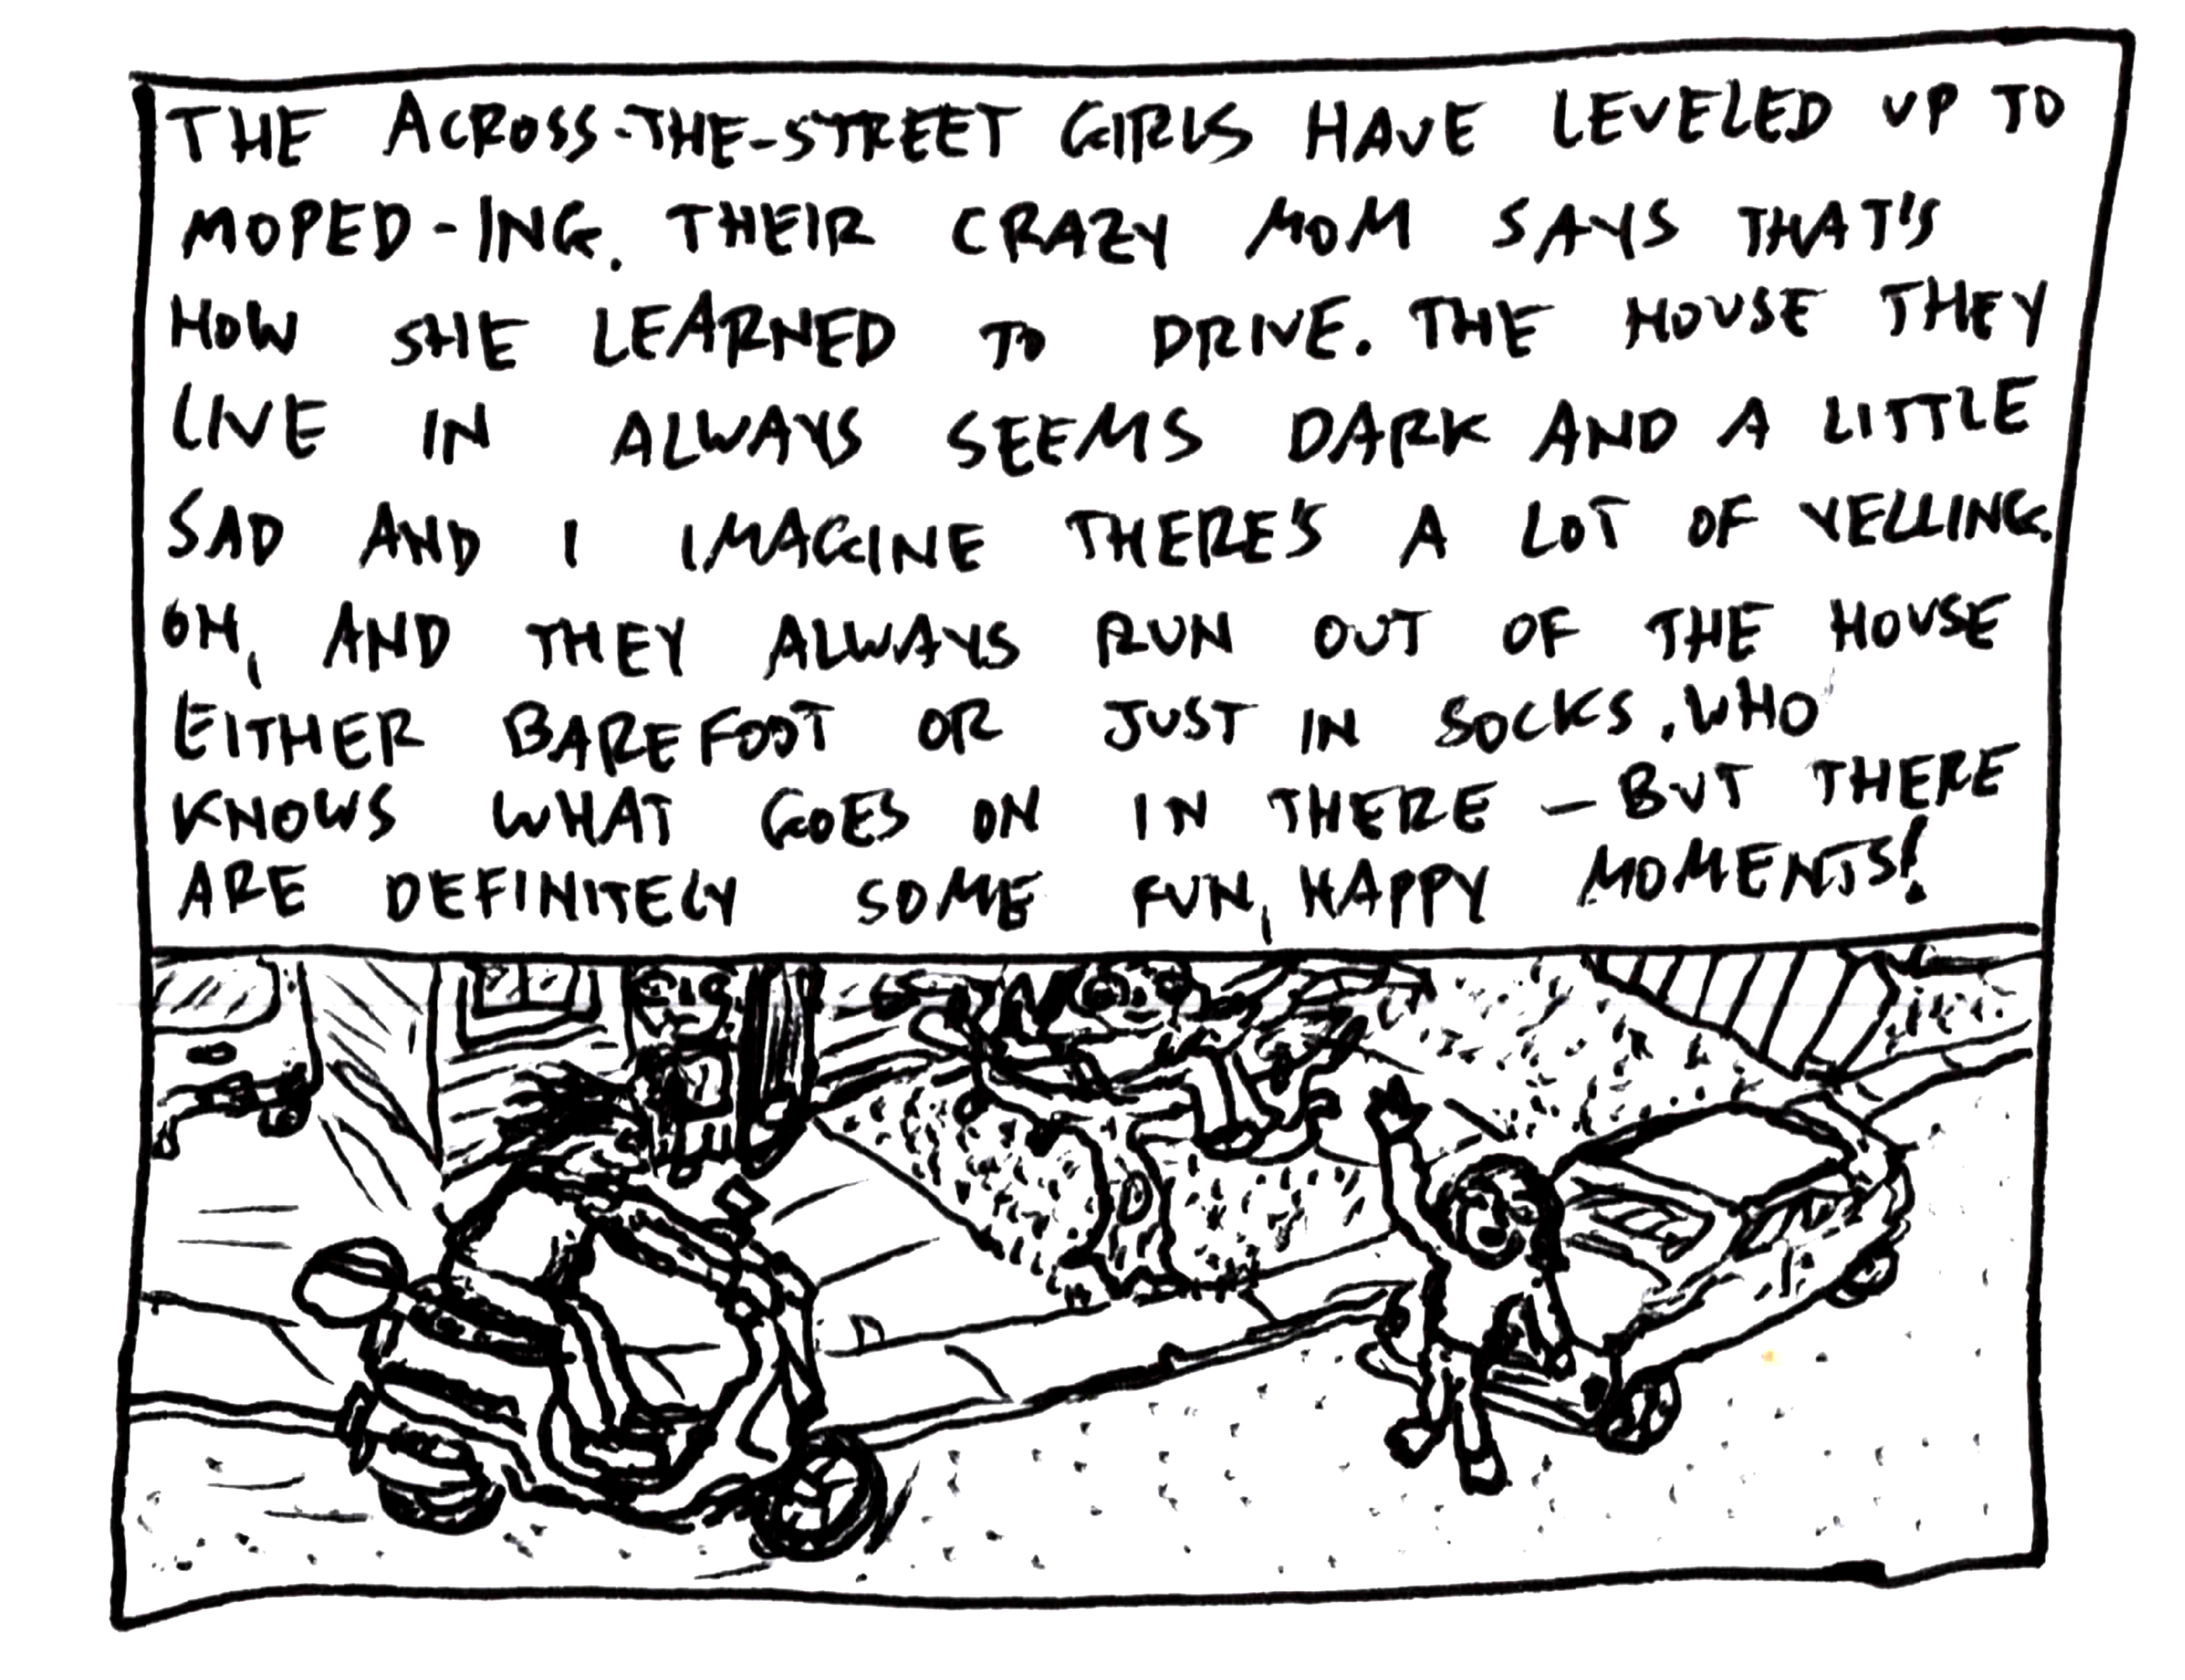 THE ACROSS-THE-STREET GIRLS HAVE LEVELED UP TO
MOPED-ING. THEIR CRAZY MOM SAYS THAT'S
HOW SHE LEARNED TO DRIVE. THE HOUSE THEY
LIVE IN ALWAYS SEEMS DARK AND A LITTLE
SAD AND I IMAGINE THERE'S A LOT OF YELLING.
OH, AND THEY ALWAYS RUN OUT OF THE HOUSE
EITHER BAREFOOT OR JUST IN SOCKS. WHO
KNOWS WHAT GOES ON IN THERE - BUT THERE
ARE DEFINITELY SOME FUN, HAPPY MOMENTS!